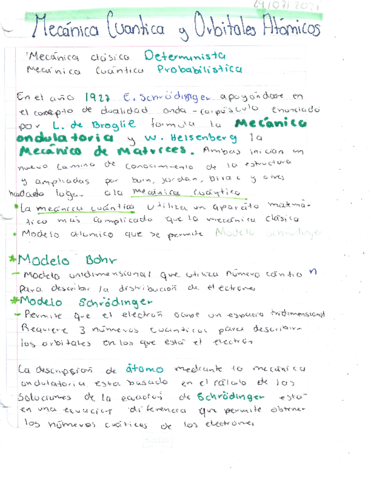 24/07/2021
Mecánica Cuantica y Orbitales Atómicos
Mecánica clásica Determinista
Mecánica Cuántica Probabilística
En el año 1927 E. Schrödinger apoyándose en
el concepto de dualidad onda-corpúsculo enunciado
por L. de Broglie formula la Mecánica
ondulatoria y W. Heisenberg la
Mecánica de Matrices. Ambas inician un
nuevo camino de conocimiento de la estructura
y ampliadas por born, Jordan, Dirac y otros
lugar a la Mecánica Cuántica
* La mecánica cuántica utiliza un aparato matemá-
tico mas complicado que la mecánica clásica
* Modelo atomico que se permite Modelo
* Modelo Bohr
- Modelo unidimensional que utiliza número cántico n
para describir la distribución de electrones
* Modelo Schrödinger
- Permite que el electron ocupe un espacio tridimensional
Requiere 3 números cuanticos para describir
los orbitales en los que está el electrón
La descripción de átomo mediante la mecánica
ondulatoria esta basado en el cálculo de las
soluciones de la ecuación de Schrödinger está
en una ecuación diferencia que permite obtener
los números cuánticos de los electrones